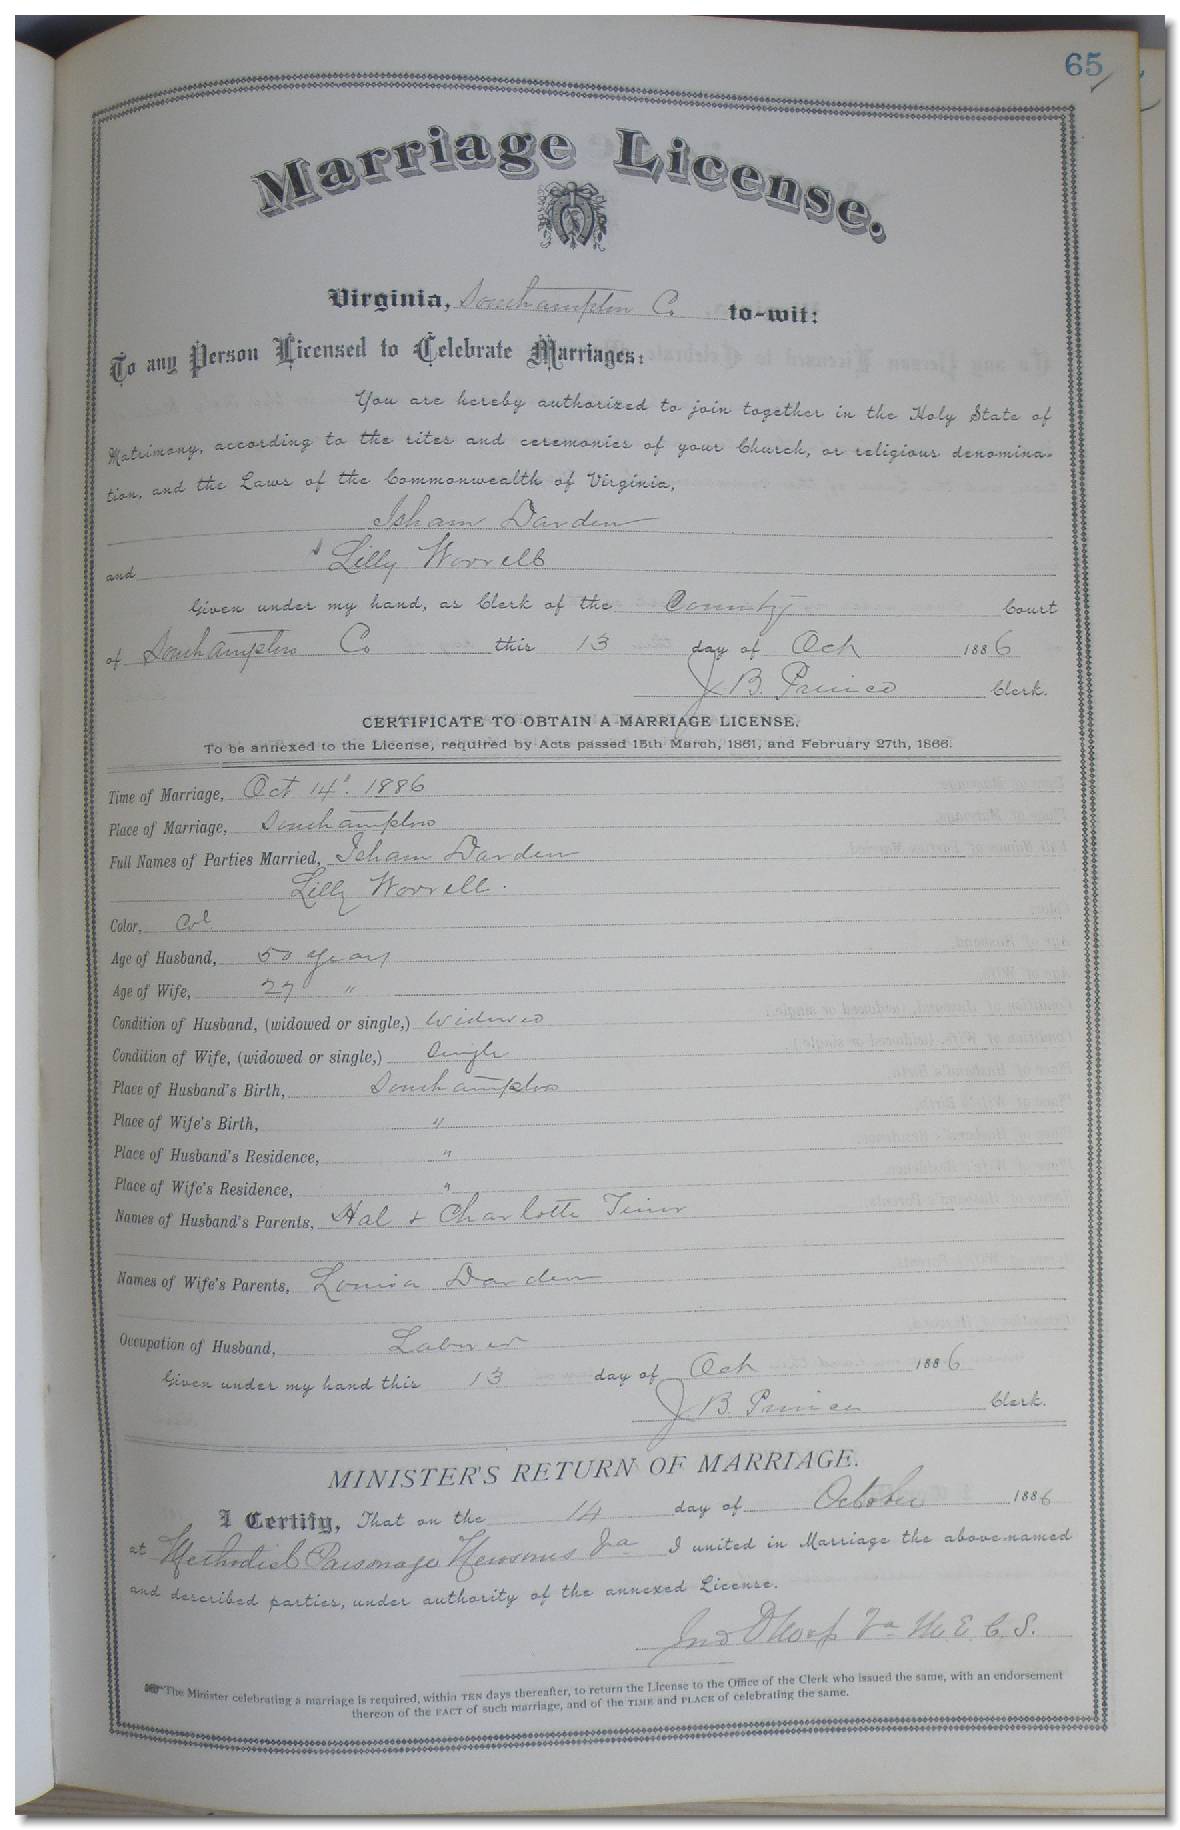 65
Marriage License.
Virginia, Southampton Co to-wit:
To any Person Licensed to Celebrate Marriages:
You are hereby authorized to join together in the Holy State of
Matrimony, according to the rites and ceremonies of your Church, or religious denomina-
tion, and the Laws of the Commonwealth of Virginia,
Isham Darden
and Lilly Worrell
Given under my hand, as Clerk of the County Court
of Southampton Co this 13 day of Oct 1886
J. B. Prince Clerk.
CERTIFICATE TO OBTAIN A MARRIAGE LICENSE.
To be annexed to the License, required by Acts passed 15th March, 1861, and February 27th, 1866.
Time of Marriage, Oct 14' 1886
Place of Marriage, Southampton
Full Names of Parties Married, Isham Darden
Lilly Worrell.
Color, Col
Age of Husband, 50 years
Age of Wife, 27 "
Condition of Husband, (widowed or single,) Widowed
Condition of Wife, (widowed or single,) Single
Place of Husband's Birth, Southampton
Place of Wife's Birth, "
Place of Husband's Residence, "
Place of Wife's Residence, "
Names of Husband's Parents, Hal & Charlotte
Names of Wife's Parents, Louisa Darden
Occupation of Husband, Laborer
Given under my hand this 13 day of Oct 1886
J. B. Prince Clerk.
MINISTER'S RETURN OF MARRIAGE.
I Certify, That on the 14 day of October 1886
at Methodist Parsonage Newsoms Va I united in Marriage the above-named
and described parties, under authority of the annexed License.
Va M. E. C. S.
The Minister celebrating a marriage is required, within TEN days thereafter, to return the License to the Office of the Clerk who issued the same, with an endorsement
thereon of the FACT of such marriage, and of the TIME and PLACE of celebrating the same.